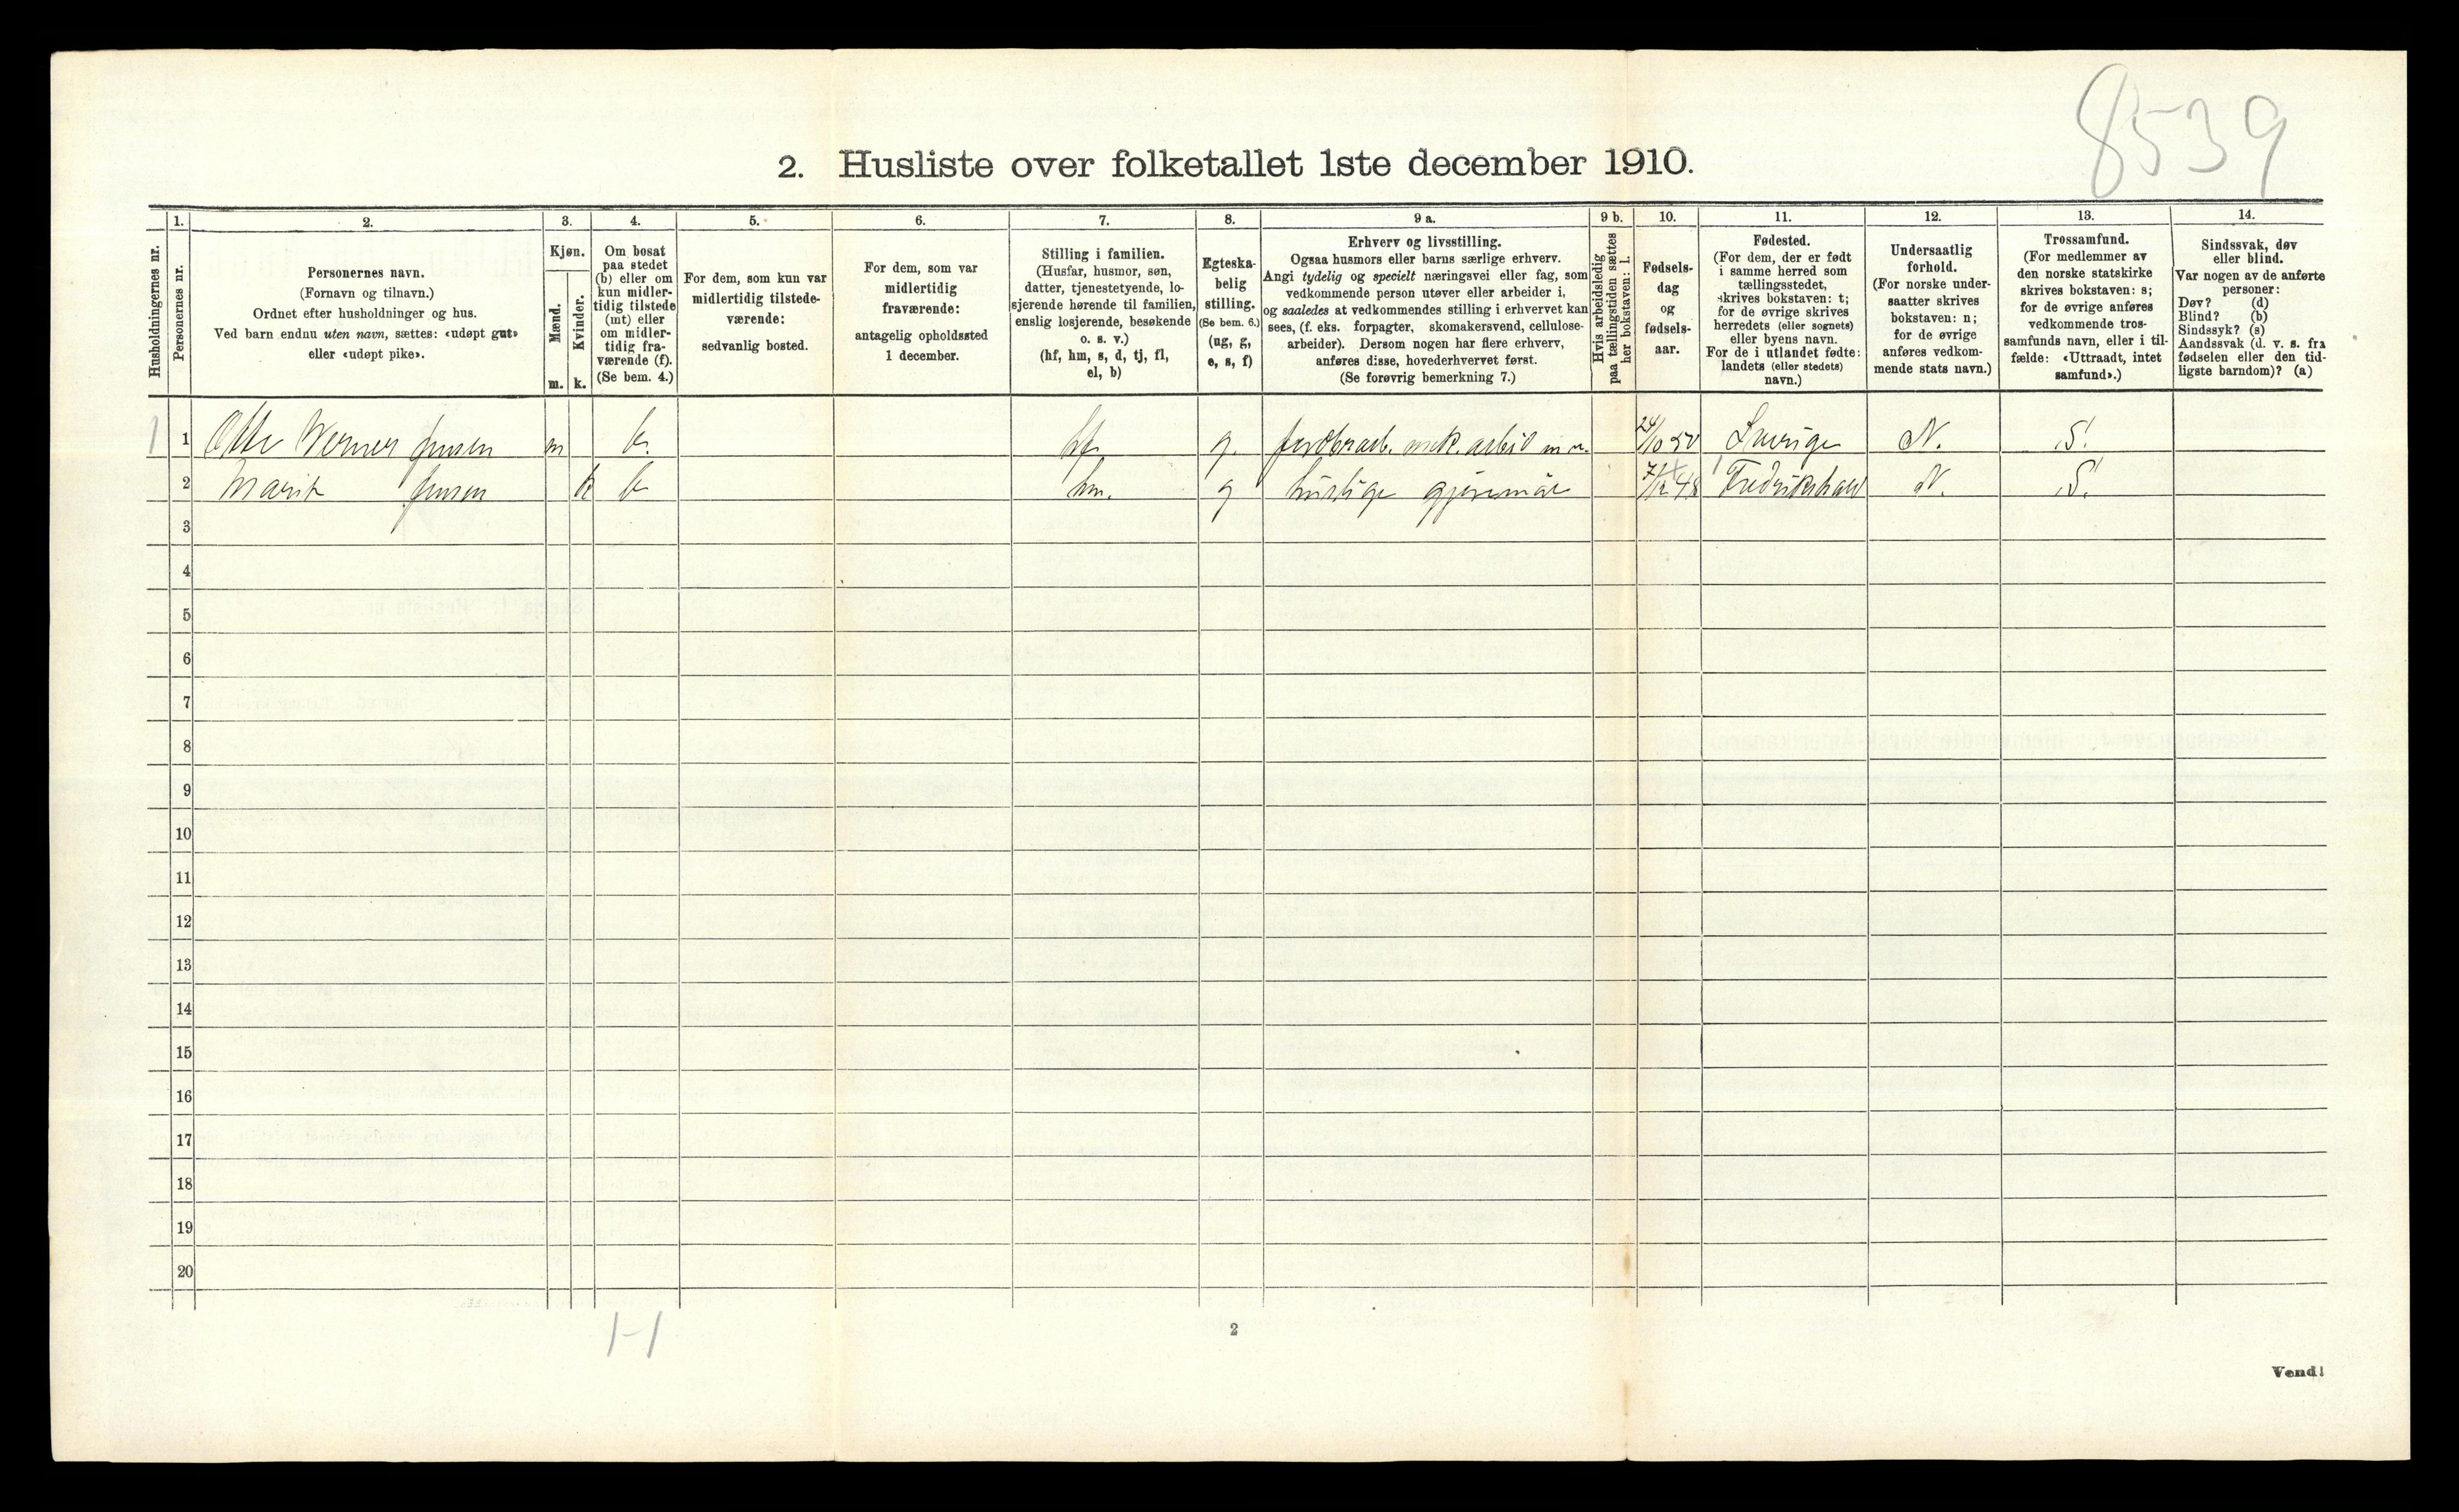 8539
2. Husliste over folketallet 1ste december 1910.
Husholdningernes nr.
1.
Personernes nr.
2.
Personernes navn.
(Fornavn og tilnavn.)
Ordnet efter husholdninger og hus.
Ved barn endnu uten navn, sættes: «udøpt gut»
eller «udøpt pike».
3.
Kjøn.
Mænd.
Kvinder.
m. k.
4.
Om bosat
paa stedet
(b) eller om
kun midler-
tidig tilstede
(mt) eller
om midler-
tidig fra-
værende (f).
(Se bem. 4.)
5.
For dem, som kun var
midlertidig tilstede-
værende:
sedvanlig bosted.
6.
For dem, som var
midlertidig
fraværende:
antagelig opholdssted
1 december.
7.
Stilling i familien.
(Husfar, husmor, søn,
datter, tjenestetyende, lo-
sjerende hørende til familien,
enslig losjerende, besøkende
o. s. v.)
(hf, hm, s, d, tj, fl,
el, b)
8.
Egteska-
belig
stilling.
(Se bem. 6.)
(ug, g,
e, s, f)
9 a.
Erhverv og livsstilling.
Ogsaa husmors eller barns særlige erhverv.
Angi tydelig og specielt næringsvei eller fag, som
vedkommende person utøver eller arbeider i,
og saaledes at vedkommendes stilling i erhvervet kan
sees, (f. eks. forpagter, skomakersvend, cellulose-
arbeider). Dersom nogen har flere erhverv,
anføres disse, hovederhvervet først.
(Se forøvrig bemerkning 7.)
9 b.
Hvis arbeidsledig
paa tællingstiden sættes
her bokstaven: l.
10.
Fødsels-
dag
og
fødsels-
aar.
11.
Fødested.
(For dem, der er født
i samme herred som
tællingsstedet,
skrives bokstaven: t;
for de øvrige skrives
herredets (eller sognets)
eller byens navn.
For de i utlandet fødte:
landets (eller stedets)
navn.)
12.
Undersaatlig
forhold.
(For norske under-
saatter skrives
bokstaven: n;
for de øvrige
anføres vedkom-
mende stats navn.)
13.
Trossamfund.
(For medlemmer av
den norske statskirke
skrives bokstaven: s;
for de øvrige anføres
vedkommende tros-
samfunds navn, eller i til-
fælde: «Uttraadt, intet
samfund».)
14.
Sindssvak, døv
eller blind.
Var nogen av de anførte
personer:
Døv? (d)
Blind? (b)
Sindssyk? (s)
Aandssvak (d. v. s. fra
fødselen eller den tid-
ligste barndom)? (a)
1 1 Otto Werner Jensen m b. hf. g. jordbrarb. mek. arbeid m m. 24/10 50 Sverige N. S.
2 Marie Jensen k b hm. g huslige gjøremål 7/12 48 Fredrikshald N. S.
3
4
5
6
7
8
9
10
11
12
13
14
15
16
17
18
19
20
1-1
2
Vend!